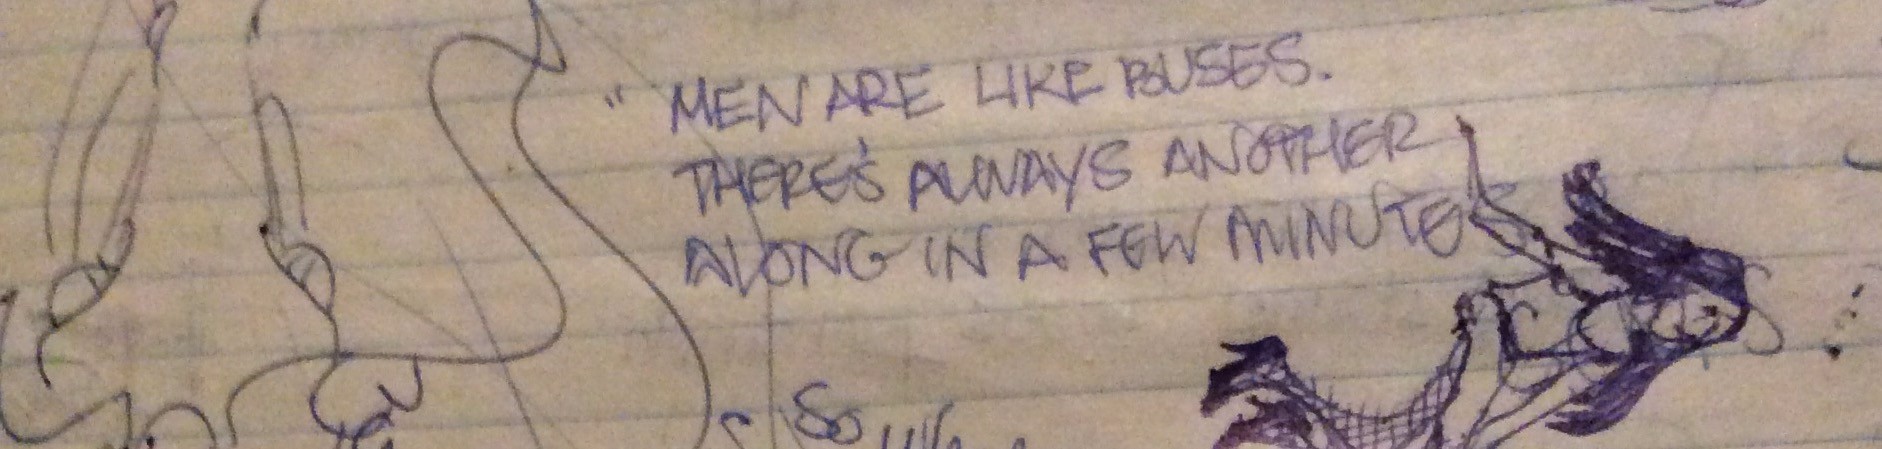 " MEN ARE LIKE BUSES.
THERE'S ALWAYS ANOTHER
ALONG IN A FEW MINUTES
So